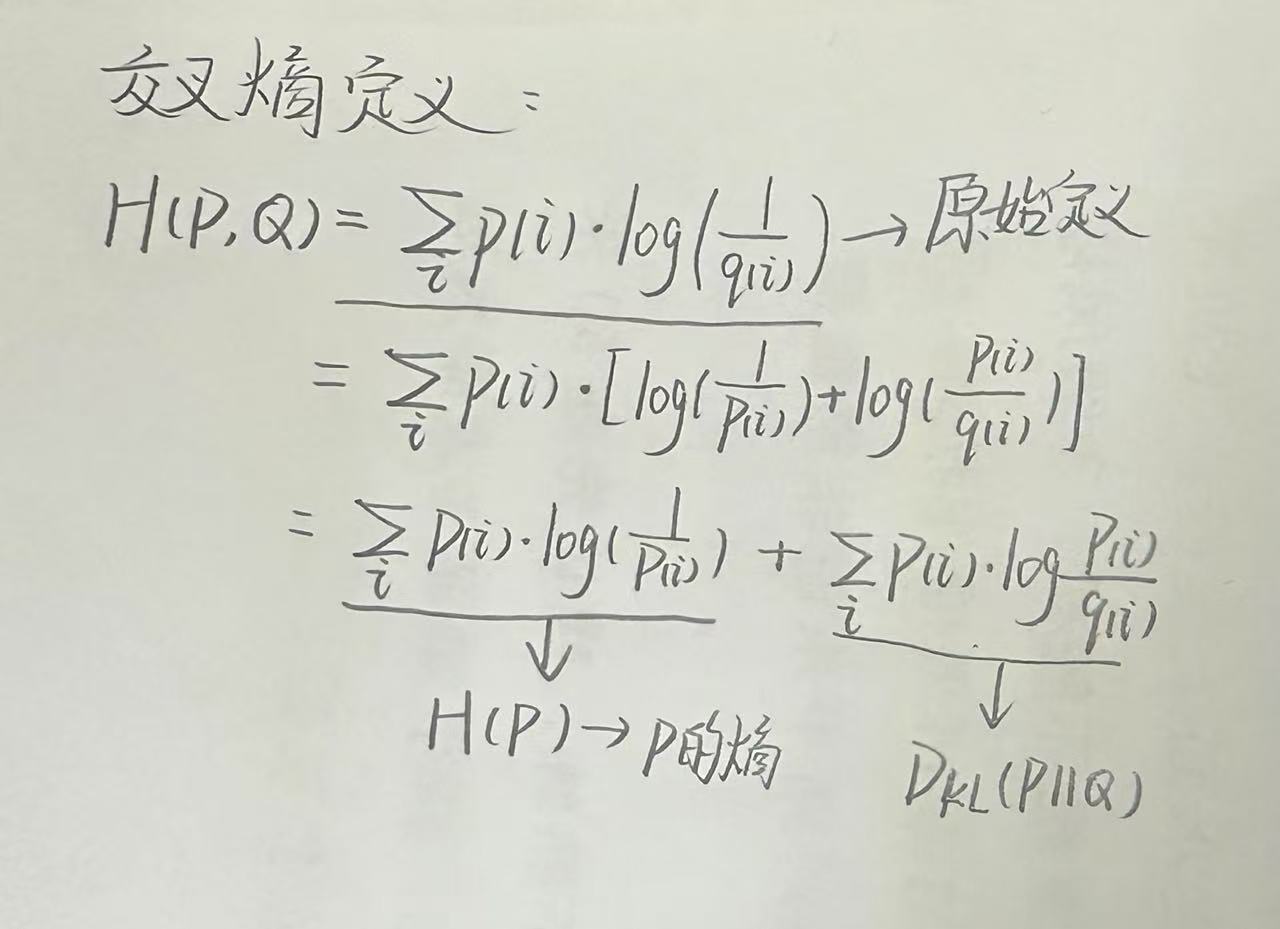 交叉熵定义：
H(P,Q) = ∑_i p(i)·log(1/q(i)) → 原始定义
= ∑_i P(i)·[log(1/P(i)) + log(P(i)/q(i))]
= ∑_i P(i)·log(1/P(i)) + ∑_i P(i)·log P(i)/q(i)
↓ ↓
H(P) → P的熵 D_KL(P||Q)